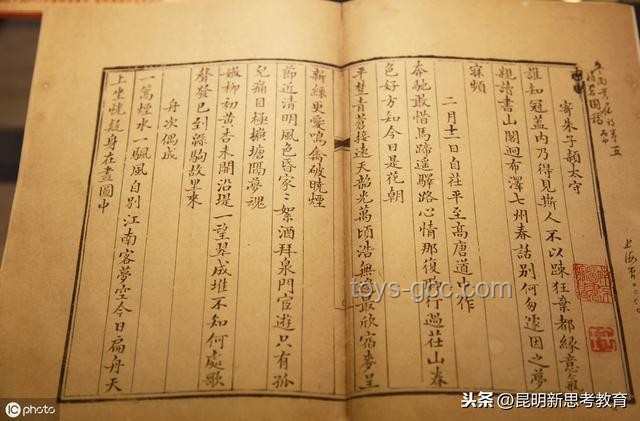 寄朱子穎太守
誰知冠蓋内乃得見斯人不以踈狂棄都緣意氣
親讀書山閣迥布澤七州春話別何匆遽因之夢
寐頻
二月十二日自茌平至高唐道中作
奔馳敢惜馬蹄遥驛路心情那復行過茌山春
色好方知今日是花朝
平楚青蒼接遠天韶光萬頃浩無邊最欣宿麥呈
新綠更愛鳴禽破曉煙
節近清明風色昏家〻絮酒拜泉門宦遊只有孤
兒痛目極橫塘隔夢魂
柳初黄杏未開沿堤一望翠成堆不知何處歌
聲發已到駒故里來
舟次偶成
一篙煙水一颿風自別江南客夢空今日扁舟天
上坐恍疑身在畫圖中
toys-gcc.com
iC photo
头条 @昆明新思考教育